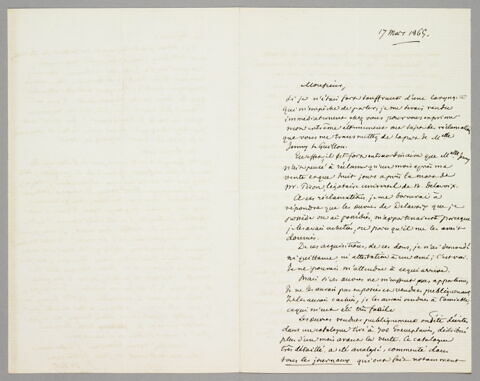 17 Mars 1865.
Monsieur,
Si je n'étais fort souffrant d'une laryngite
qui m'empêche de parler, je me serais rendu
immédiatement chez vous pour vous exprimer
mon extrême étonnement de la réclamation
que vous me transmettez de la part de Melle
Jenny Le Guillou.
En effet, il est fort extraordinaire que Melle Jenny
n'ait pensé à réclamer qu'un mois après ma
vente et que huit jours après la mort de
Mr. Piron légataire universel de E. Delacroix.
A ces réclamations je me bornerai à
répondre que les œuvres de Delacroix que je
possède ou ai possédées, m'appartenaient parce que
je les avais achetées, ou parce qu'il me les avait
données.
De ces acquisitions, de ces dons, je n'ai demandé
ni quittance, ni attestation à un ami; c'est vrai.
Je ne pouvais m'attendre à ce qui arrive.
Mais si ces œuvres ne m'eussent pas appartenu,
je ne les aurais pas exposées et vendues publiquement,
je les aurais cachées, je les aurais vendues à l'amiable,
ce qui m'eut été très facile.
Les œuvres vendues publiquement ont été décrites
dans un catalogue tiré à 700 exemplaires, distribué
plus d'un mois avant la vente. Le catalogue
très détaillé, a été analysé, commenté dans
tous les journaux qui ont fait notamment